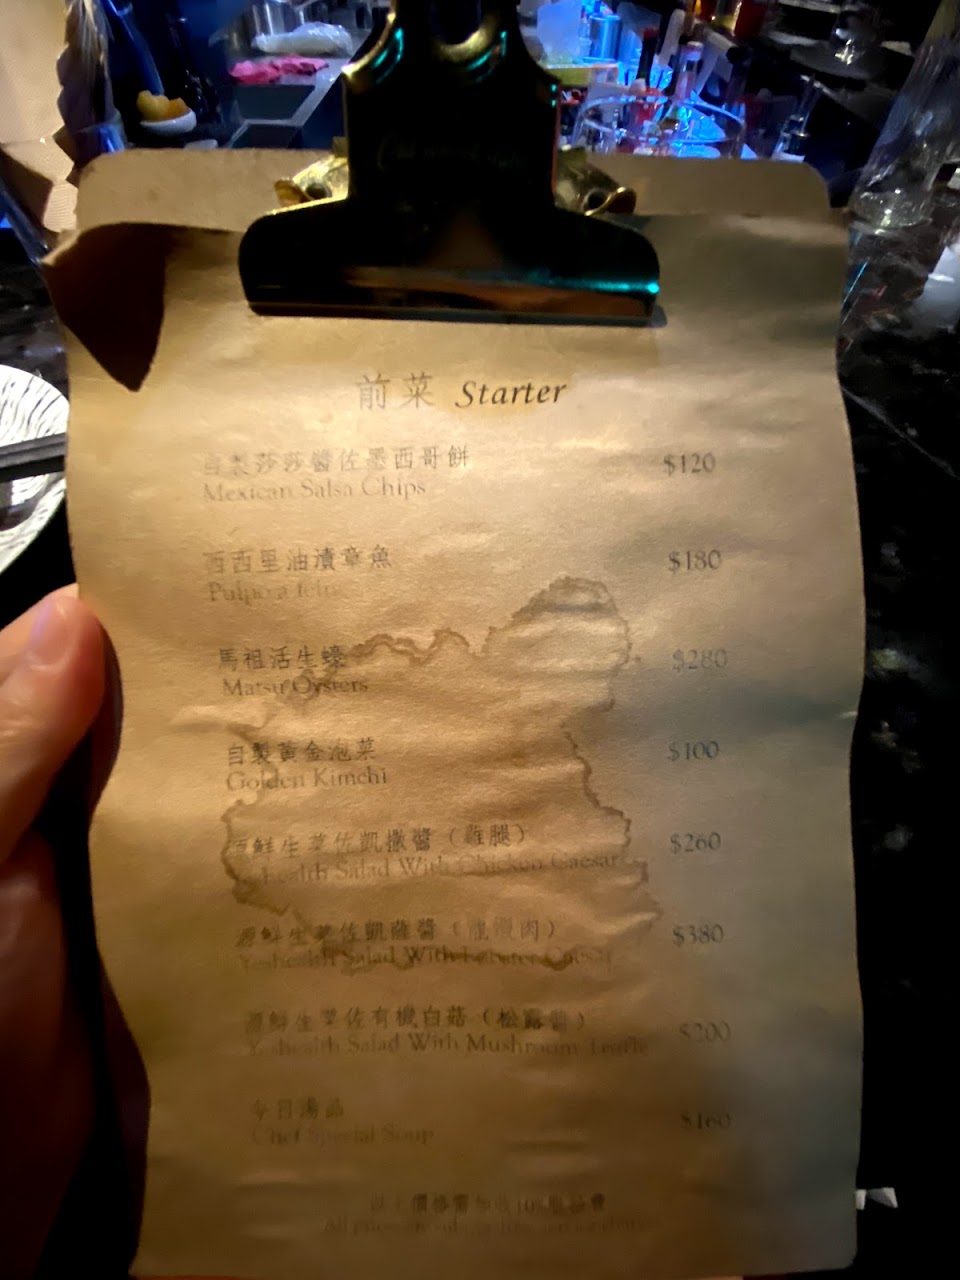 前菜 Starter
自製莎莎醬佐墨西哥餅 $120
Mexican Salsa Chips
西西里油漬章魚 $180
Pulpo a
馬祖活生蠔 $280
Matsu Oysters
自製黃金泡菜 $100
Golden Kimchi
源鮮生菜佐凱撒醬（雞腿） $260
Yeshealth Salad With Chicken Caesar
源鮮生菜佐凱薩醬（龍蝦肉） $380
Yeshealth Salad With Lobster Caesar
源鮮生菜佐有機白菇（松露醬） $200
Yeshealth Salad With Mushroom Truffle
今日湯品 $160
Chef Special Soup
以上價格需加收10%服務費
All